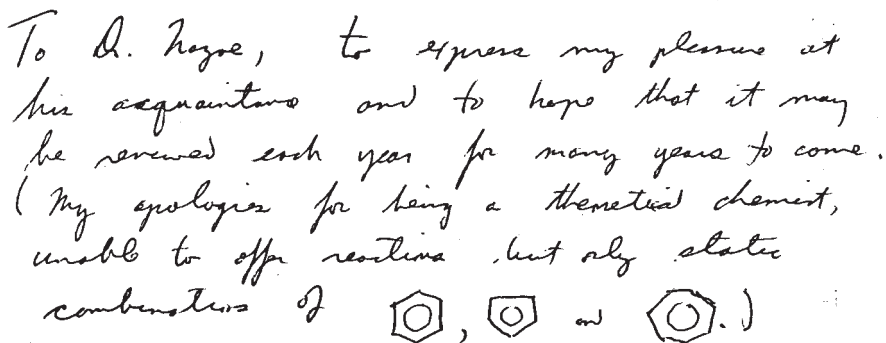 To Dr. Nozoe, to express my pleasure at
his acquaintance and to hope that it may
be renewed each year for many years to come.
(My apologies for being a theoretical chemist,
unable to offer reactions but only static
combinations of , and .)